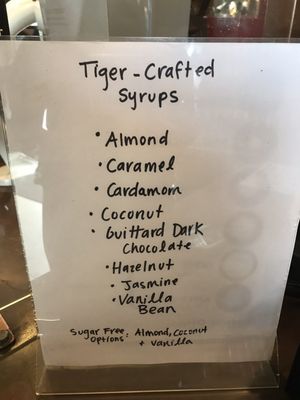 Tiger-Crafted
Syrups
• Almond
• Caramel
• Cardamom
• Coconut
• Guittard Dark
Chocolate
• Hazelnut
• Jasmine
• Vanilla
Bean
Sugar Free Options: Almond, Coconut
+ Vanilla